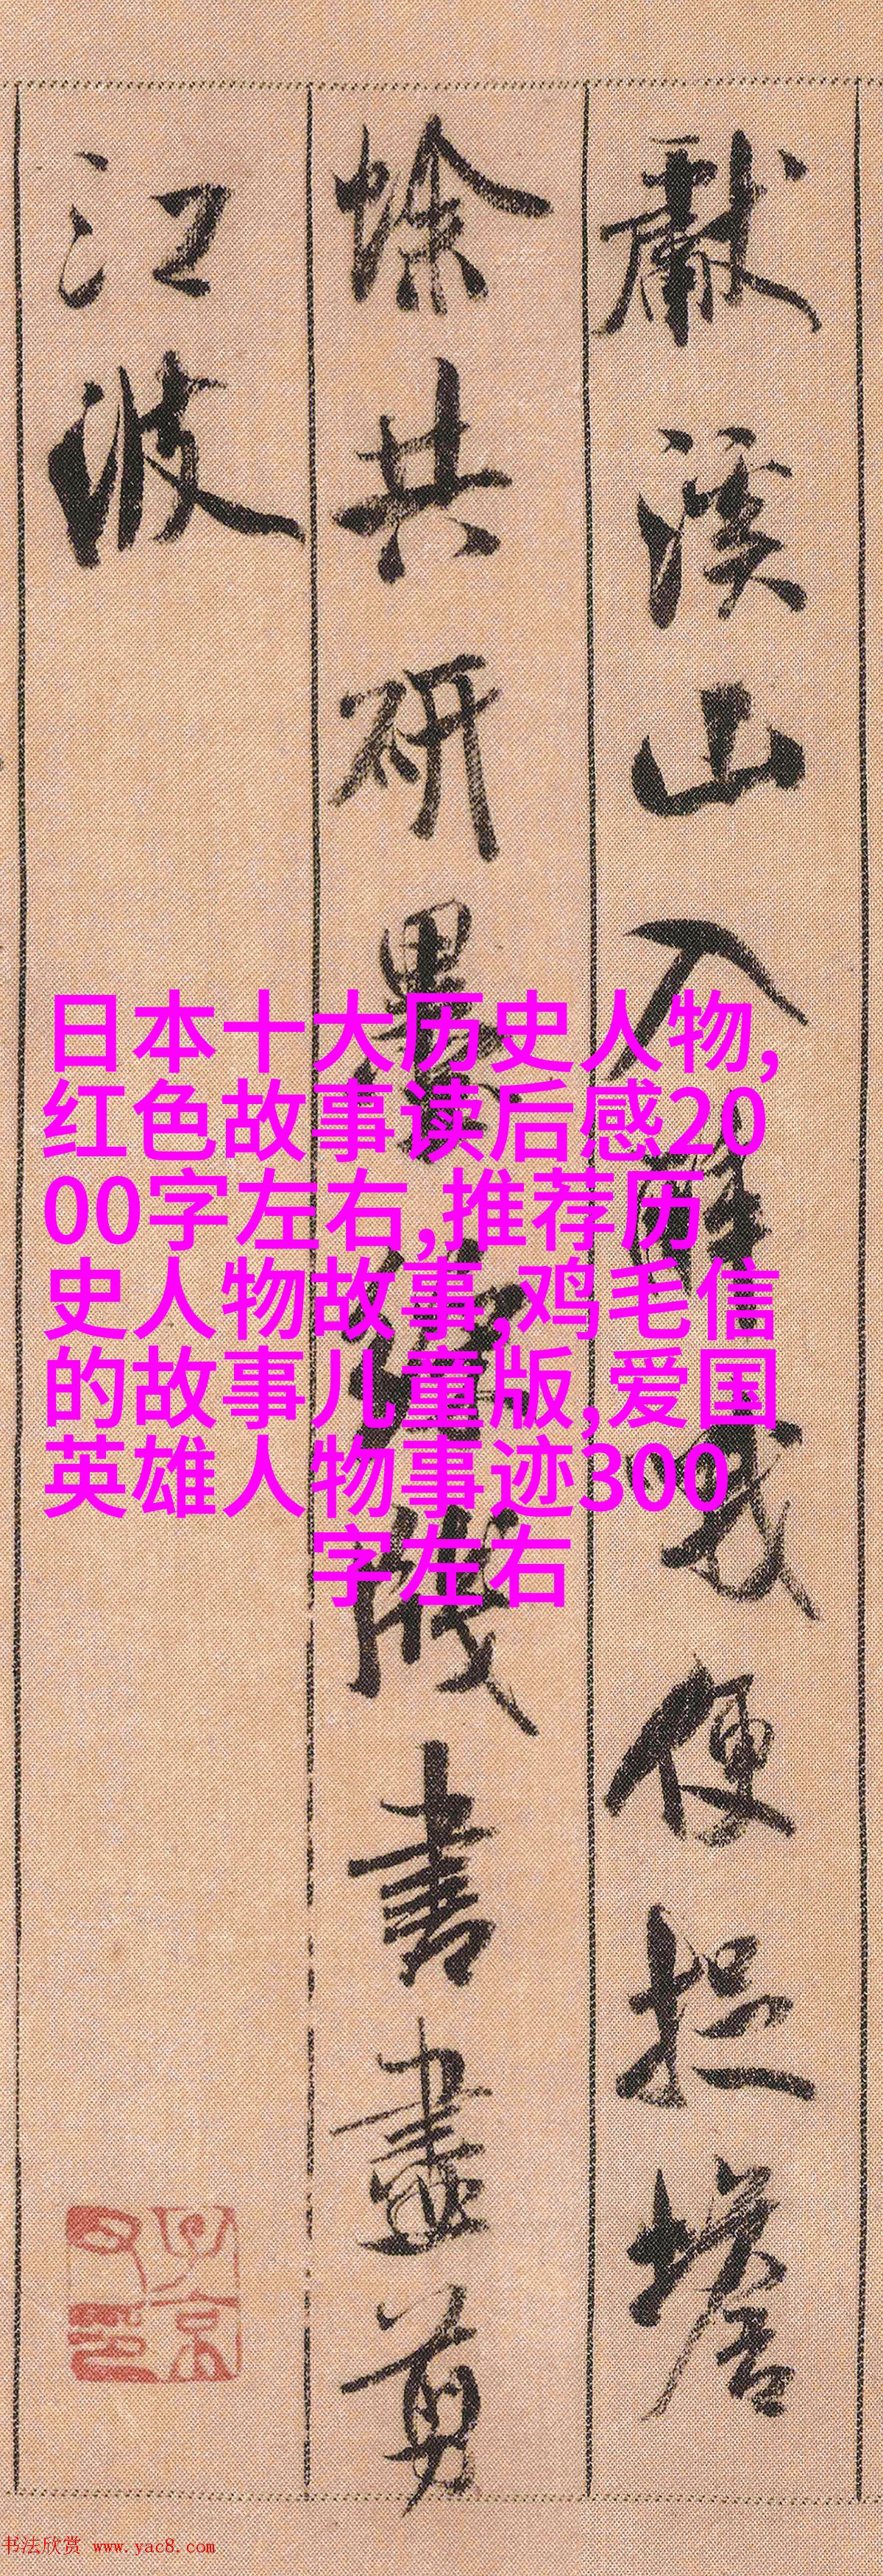 献溪山入
便捉蟾
蜍共研墨
笺书画剪
江波
日本十大历史人物,
红色故事读后感20
00字左右,推荐历
史人物故事,鸡毛信
的故事儿童版,爱国
英雄人物事迹300
字左右
书法欣赏 www.yac8.com